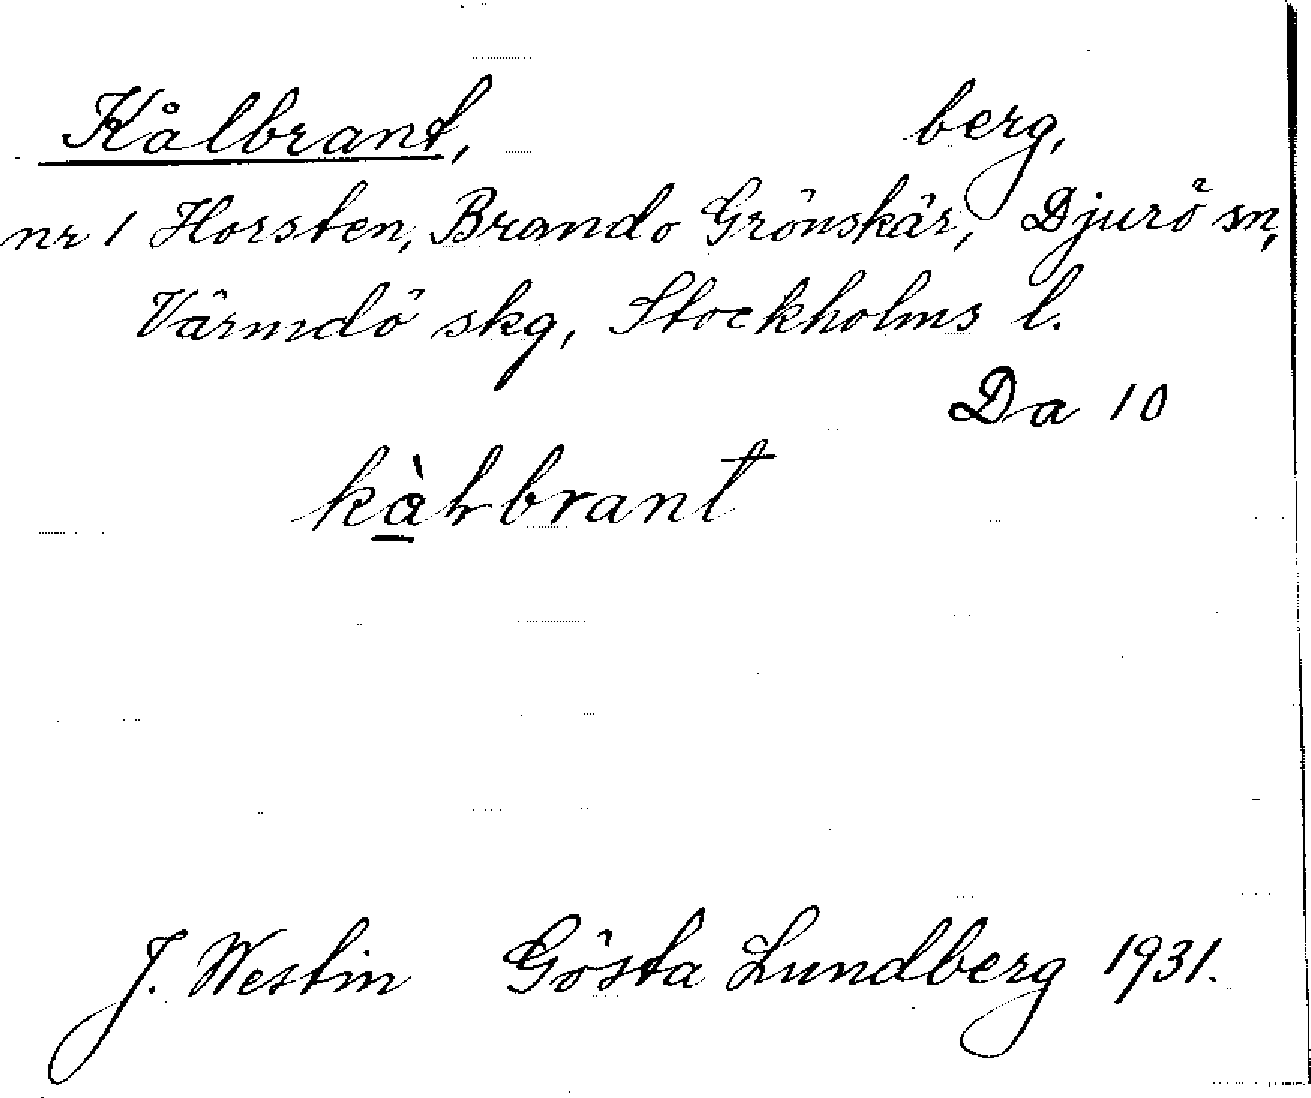 Kålbrant, berg,
nr 1 Horsten, Brando Grönskär, Djurö sn,
Värmdö skg, Stockholms l.
Da 10
J. Westin Gösta Lundberg 1931.